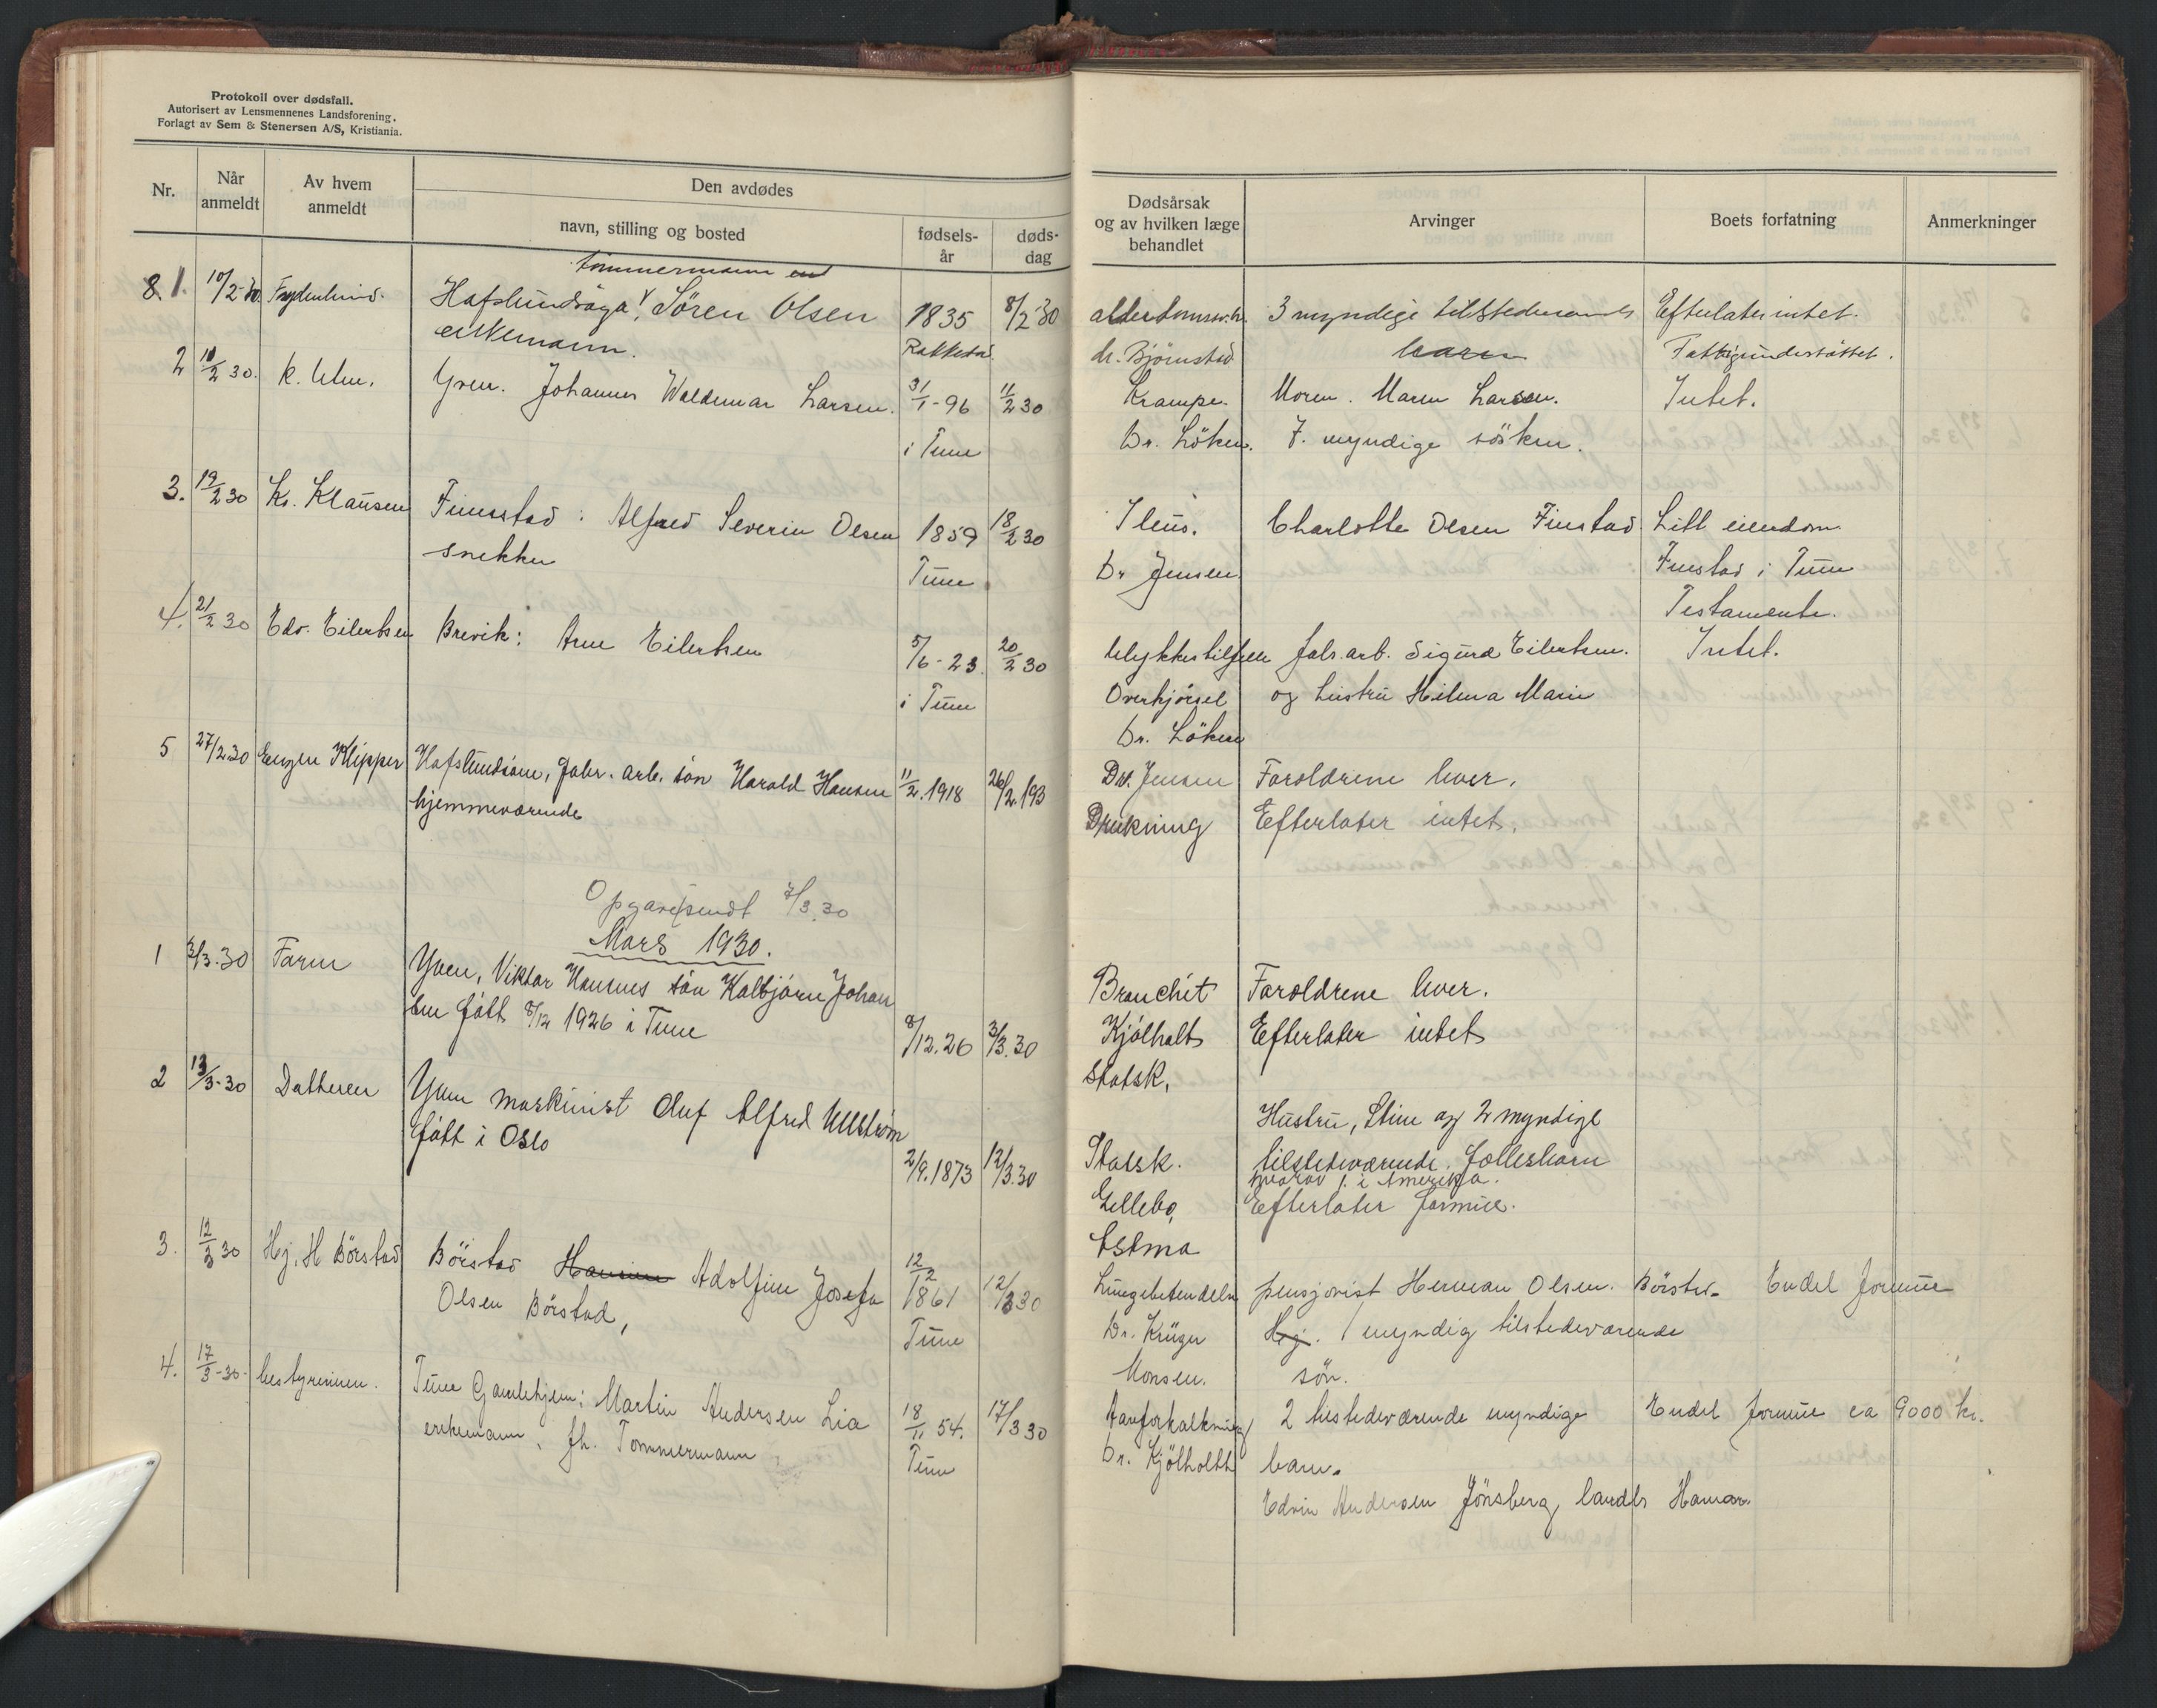 Protokoll over dødsfall.
Autorisert av Lensmennenes Landsforening.
Forlagt av Sem & Stenersen A/S, Kristiania.
Nr.
Når anmeldt
Av hvem anmeldt
Den avdødes
navn, stilling og bosted
fødsels-år
døds-dag
Dødsårsak og av hvilken læge behandlet
Arvinger
Boets forfatning
Anmerkninger
tømmermann
8. 1. 10/2 30. Søren Olsen 1835 8/2 30 3 myndige Efterlater intet.
enkemann. Rakkestad dr. Björnstad barn Fattigunderstöttet.
2 10/2 30. Yven. Johannes Waldemar Larsen. 31/1-96 11/2 30 Krampe. Moren. Maren Larsen. Intet.
i Tune Dr. Löken. 7. myndige sösken.
3. 19/2 30 Kr. Klausen Finnstad: Alfred Severin Olsen 1859 18/2 30 Ileus. Charlotte Olsen Finstad Litt eiendom
snekker Tune Dr Jensen. Finstad i Tune
Testamente.
4. 21/2 30 Edv. Eilertsen Brevik: Arne Eilertsen 5/6-23. 20/2 30 Ulykkestilfelle fabr. arb. Sigurd Eilertsen. Intet.
i Tune Overkjörsel og hustru Hilma Marie
Dr. Löken
5 27/2 30 Eugen Klipper Hafslundsöen, fabr. arb. sön Harald Hansen 11/2.1918 26/2.193 Dr. Jensen Foreldrene lever.
hjemmeværende Drukning Efterlater intet.
Opgave sendt 7/3 30
Mars 1930.
1 3/3.30 Faren Yven, Viktor Hansens sön Kolbjörn Johan Bronchit Foreldrene lever.
fött 8/12 1926 i Tune 8/12.26 3/3.30 Kjölholt Efterlater intet
Statsk.
2 13/3-30 Datteren Yven maskinist Oluf Alfred Ullström Hustru, Stine og 2 myndige
fött i Oslo 2/9.1873 12/3.30 Statsk. tilstedeværende. fellesbarn
hvorav 1. i Amerika.
Gellebo, Efterlater formue.
Astma
3. 12/3 30 Hj. H Börstad Börstad Hansine Adolfine Josefa 12/2 1861 12/3 30 Lungebetendelse pensjonist Herman Olsen. Börstad Endel formue
Olsen Börstad, Tune Dr. Krüger Hg. 1 myndig tilstedeværende
Monsen. sön.
4. 17/3-30. bestyrerinnen. Tune Gamlehjem: Martin Andersen Lia 18/11 54. 17/3 30 Aareforkalkning 2 tilstedeværende myndige Endel formue ca 9000 kr.
enkemann, fh. Tømmermann Tune Dr. Kjölholt barn.
Edvin Andersen Jönsberg, landbr Hamar.